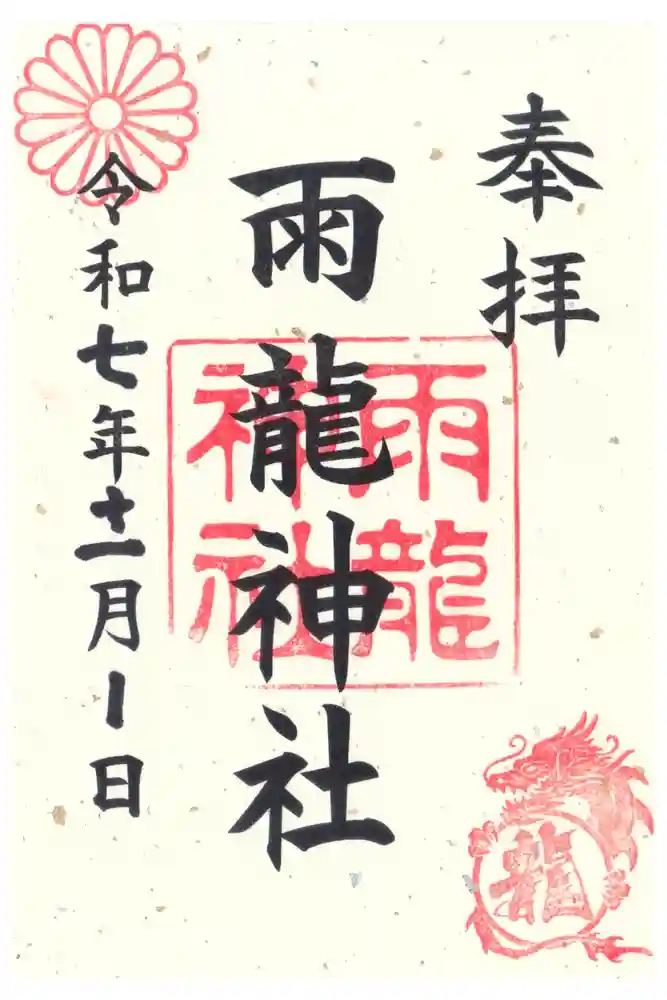 奉拝
雨龍神社
令和七年十一月1日
雨龍
神社
龍